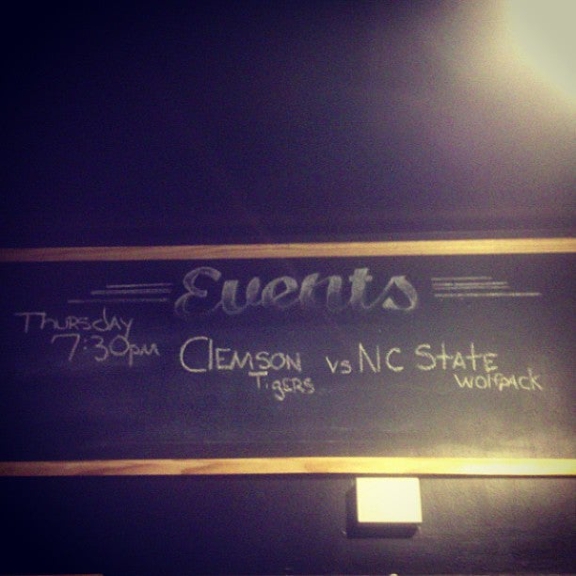 Events
Thursday
7:30pm
Clemson vs NC State
Tigers Wolfpack